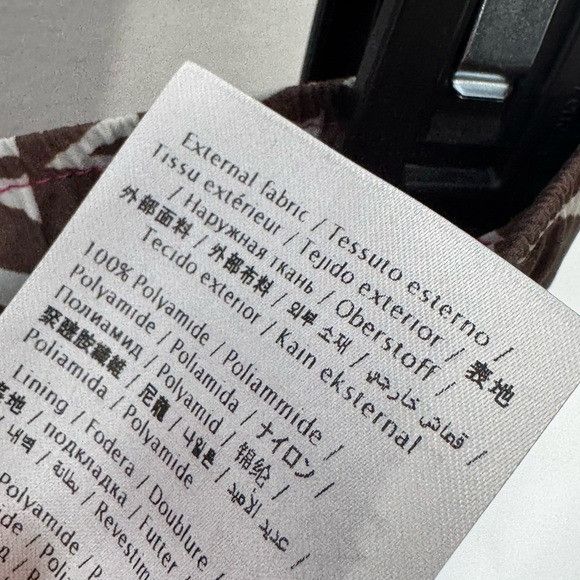 External fabric / Tessuto esterno /
Tissu extérieur / Tejido exterior / 表地
/ Наружная ткань / Oberstoff /
外部面料 / 外部布料 / 외부 소재 / قماش خارجي /
Tecido exterior / Kain eksternal
100% Polyamide / Poliammide /
Polyamide / Poliamida / ナイロン /
Полиамид / Polyamid / 锦纶 /
聚醯胺纖維 / 尼龍 / 나일론 /
Poliamida / Polyamide
Lining / Fodera / Doublure /
/ подкладка / Futter
/ 내벽 / بطانة / Revestim
Polyamide /